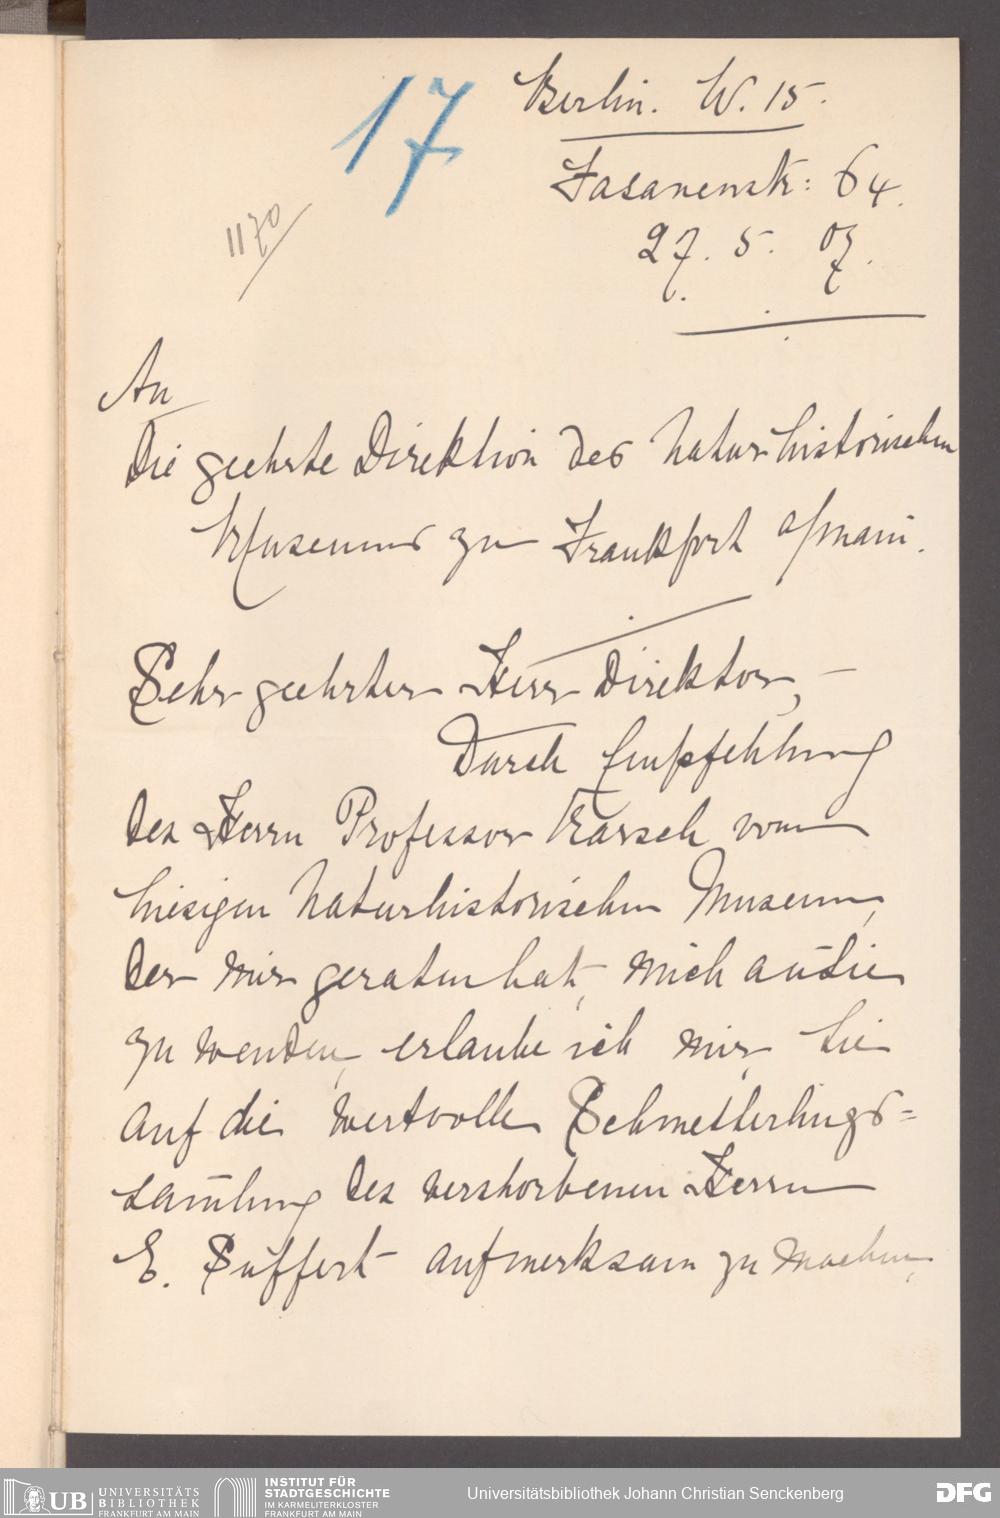 17
Berlin. W. 15.
Fasanenstr: 64.
27. 5. 07.
1170
An
Die geehrte Direktion des Naturhistorischen
Museums zu Frankfort a/Main.
Sehr geehrter Herr Direktor, –
Durch Empfehlung
des Herrn Professor Karsch vom
hiesigen Naturhistorischen Museum,
der mir geraten hat, mich an Sie
zu wenden, erlaube ich mir, Sie
auf die wertvolle Schmetterlings=
samlung des verstorbenen Herrn
E. Suffert aufmerksam zu machen,
UB UNIVERSITÄTS
BIBLIOTHEK
FRANKFURT AM MAIN
INSTITUT FÜR
STADTGESCHICHTE
IM KARMELITERKLOSTER
FRANKFURT AM MAIN
Universitätsbibliothek Johann Christian Senckenberg
DFG